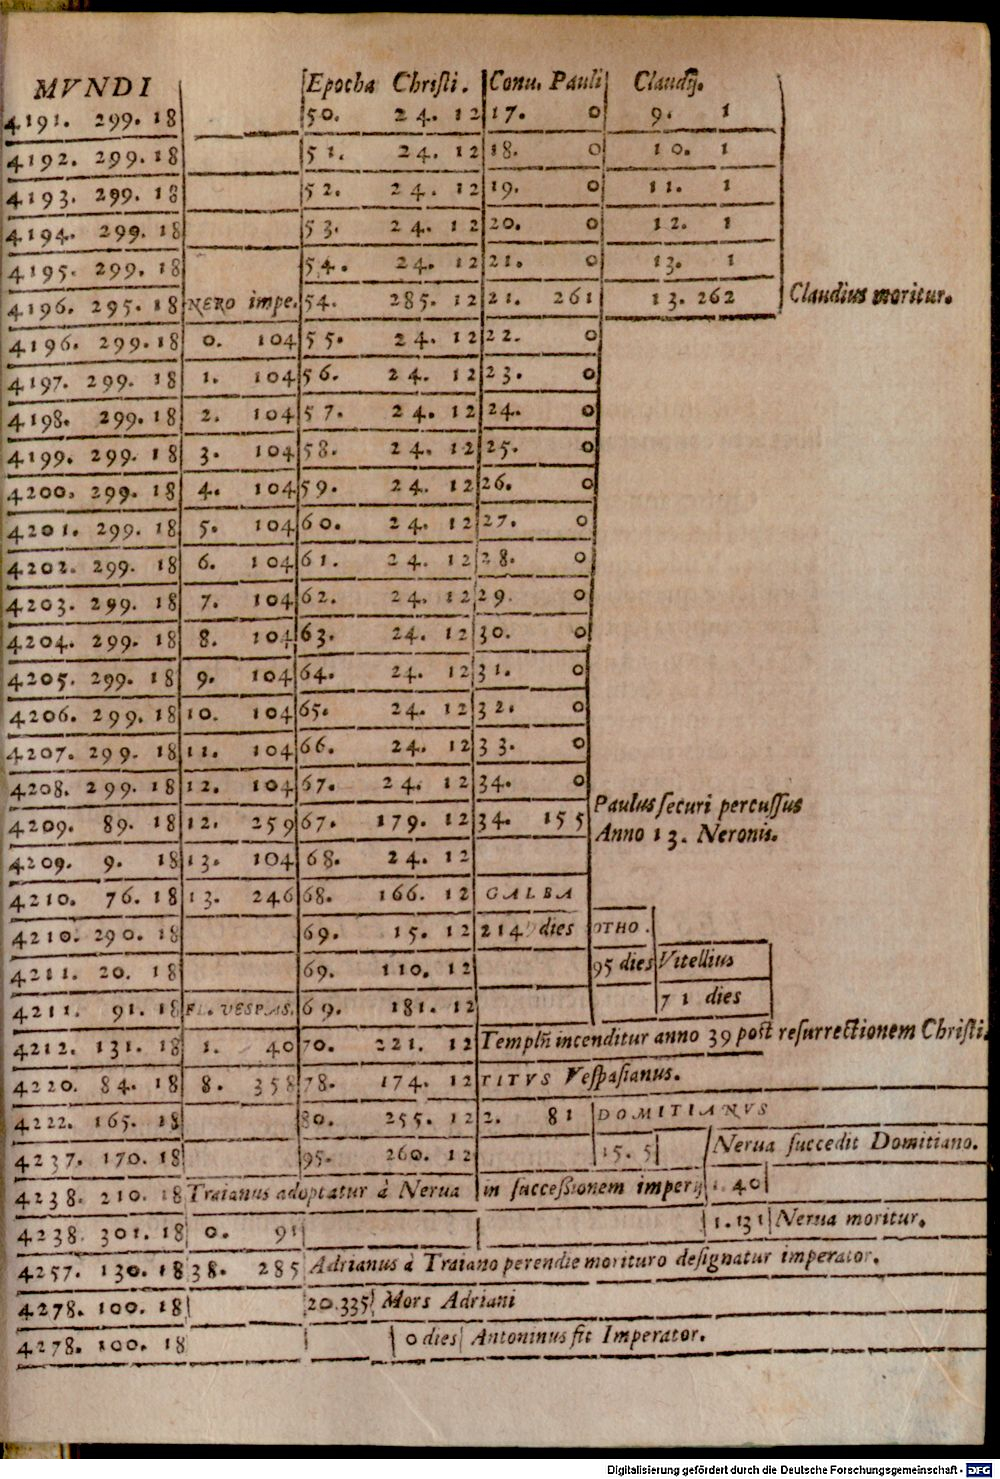 MVNDI Epocha Christi. Conu. Pauli Claudij.
4191. 299. 18 50. 24. 12 17. 0 9. 1
4192. 299. 18 51. 24. 12 18. 0 10. 1
4193. 299. 18 52. 24. 12 19. 0 11. 1
4194. 299. 18 53. 24. 12 20. 0 12. 1
4195. 299. 18 54. 24. 12 21. 0 13. 1
4196. 295. 18 NERO impe. 54. 285. 12 21. 261 13. 262 Claudius moritur.
4196. 299. 18 0. 104 55. 24. 12 22. 0
4197. 299. 18 1. 104 56. 24. 12 23. 0
4198. 299. 18 2. 104 57. 24. 12 24. 0
4199. 299. 18 3. 104 58. 24. 12 25. 0
4200. 299. 18 4. 104 59. 24. 12 26. 0
4201. 299. 18 5. 104 60. 24. 12 27. 0
4202. 299. 18 6. 104 61. 24. 12 28. 0
4203. 299. 18 7. 104 62. 24. 12 29. 0
4204. 299. 18 8. 104 63. 24. 12 30. 0
4205. 299. 18 9. 104 64. 24. 12 31. 0
4206. 299. 18 10. 104 65. 24. 12 32. 0
4207. 299. 18 11. 104 66. 24. 12 33. 0
4208. 299. 18 12. 104 67. 24. 12 34. 0
Paulus securi percussus
4209. 89. 18 12. 259 67. 179. 12 34. 155
Anno 13. Neronis.
4209. 9. 18 13. 104 68. 24. 12
4210. 76. 18 13. 246 68. 166. 12 GALBA
4210. 290. 18 69. 15. 12 214 dies OTHO.
4211. 20. 18 69. 110. 12 95 dies Vitellius
4211. 91. 18 FL. VESPAS. 69. 181. 12 71 dies
4212. 131. 18 1. 40 70. 221. 12 Templũ incenditur anno 39 post resurrectionem Christi.
4220. 84. 18 8. 358 78. 174. 12 TITVS Vespasianus.
4222. 165. 18 80. 255. 12 2. 81 DOMITIANVS
4237. 170. 18 95. 260. 12 15. 5 Nerua succedit Domitiano.
4238. 210. 18 Traianus adoptatur à Nerua in successionem imperij 1. 40
4238. 301. 18 0. 91 1. 131 Nerua moritur.
4257. 130. 18 38. 285 Adrianus à Traiano perendie morituro designatur imperator.
4278. 100. 18 20. 335 Mors Adriani
4278. 100. 18 0 dies Antoninus fit Imperator.
Digitalisierung gefördert durch die Deutsche Forschungsgemeinschaft - DFG